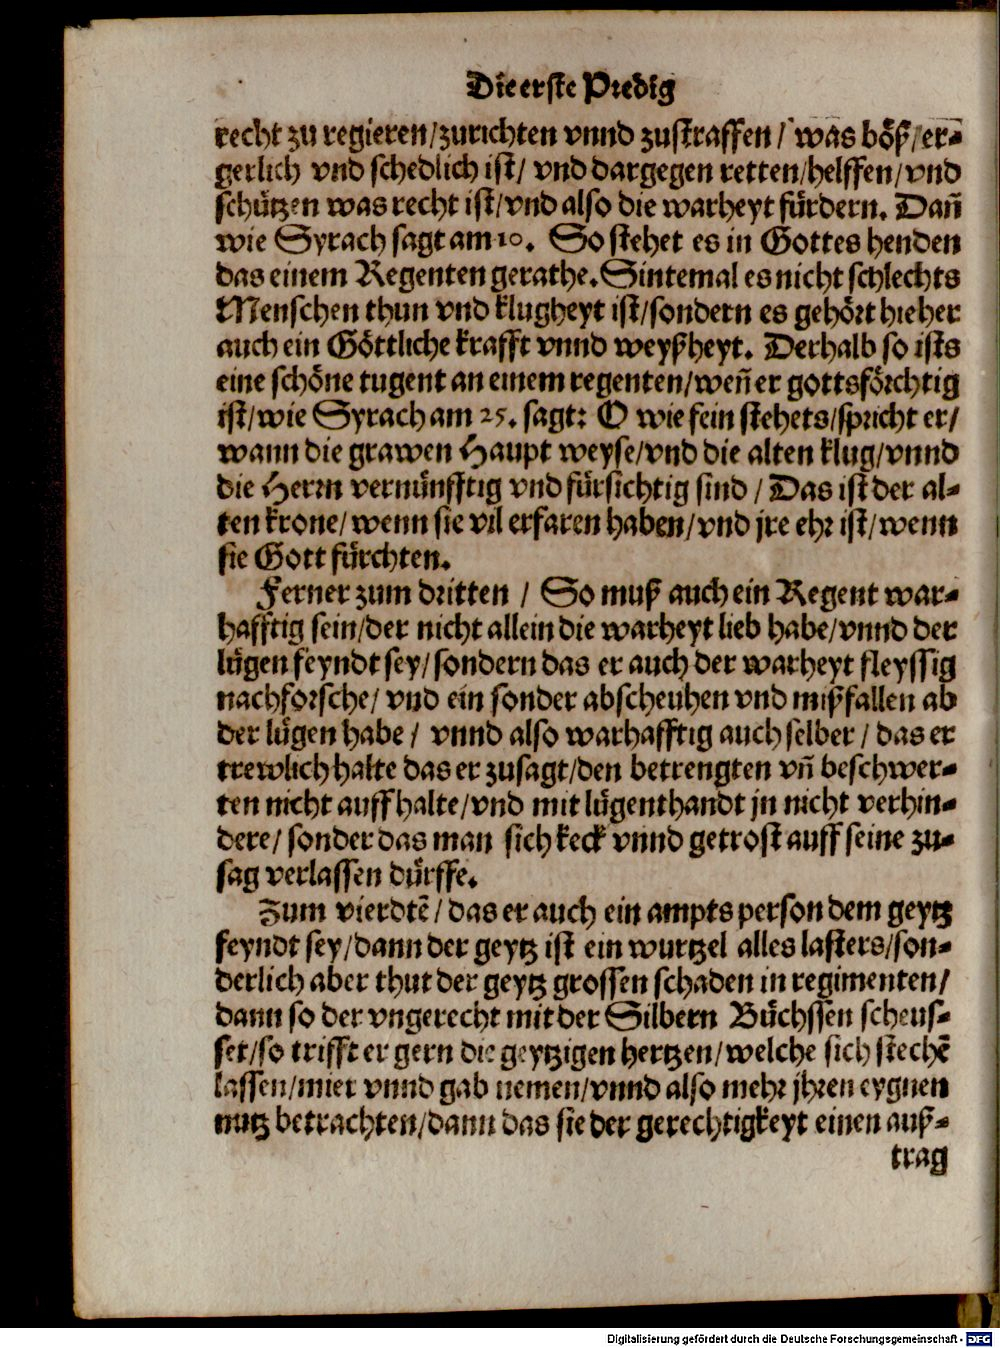 Die erste Predig
recht zu regieren/zurichten vnnd zustraffen/ was böß/er-
gerlich vnd schedlich ist/ vnd dargegen retten/helffen/vnd
schützen was recht ist/vnd also die warheyt fürdern. Dañ
wie Syrach sagt am 10. So stehet es in Gottes henden
das einem Regenten gerathe. Sintemal es nicht schlechts
Menschen thun vnd klugheyt ist/sondern es gehört hieher
auch ein Göttliche krafft vnnd weyßheyt. Derhalb so ists
eine schöne tugent an einem regenten/weñ er gottsförchtig
ist/wie Syrach am 25. sagt: O wie fein stehets/spricht er/
wann die grawen Haupt weyse/vnd die alten klug/vnnd
die Herrn vernünfftig vnd fürsichtig sind/ Das ist der al-
ten krone/wenn sie vil erfaren haben/vnd jre ehr ist/wenn
sie Gott fürchten.
Ferner zum dritten/ So muß auch ein Regent war-
hafftig sein/der nicht allein die warheyt lieb habe/vnnd der
lügen feyndt sey/sondern das er auch der warheyt fleyssig
nachforsche/ vnd ein sonder abscheuhen vnd mißfallen ab
der lügen habe/ vnnd also warhafftig auch selber/ das er
trewlich halte das er zusagt/den betrengten vñ beschwer-
ten nicht auffhalte/vnd mit lügenthandt jn nicht verhin-
dere/ sonder das man sich keck vnnd getrost auff seine zu-
sag verlassen dürffe.
Zum vierdtē/ das er auch ein ampts person dem geytz
feyndt sey/dann der geytz ist ein wurtzel alles lasters/son-
derlich aber thut der geytz grossen schaden in regimenten/
dann so der vngerecht mit der Silbern Büchssen scheus-
set/so trifft er gern die geytzigen hertzen/welche sich stechē
lassen/miet vnnd gab nemen/vnnd also mehr jhren eygnen
nutz betrachten/dann das sie der gerechtigkeyt einen auß-
trag
Digitalisierung gefördert durch die Deutsche Forschungsgemeinschaft - DFG